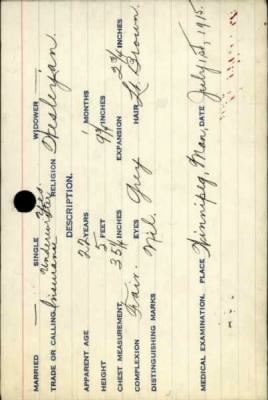 MARRIED — SINGLE Yes. WIDOWER —
TRADE OR CALLING Insurance Underwriter RELIGION Wesleyan.
DESCRIPTION.
APPARENT AGE 22 YEARS ' MONTHS
HEIGHT 5 FEET INCHES
CHEST MEASUREMENT, INCHES EXPANSION INCHES
COMPLEXION Fair. EYES Grey HAIR Lt Brown.
DISTINGUISHING MARKS Nil.
MEDICAL EXAMINATION. PLACE Winnipeg, Man, DATE July 1st, 1915.